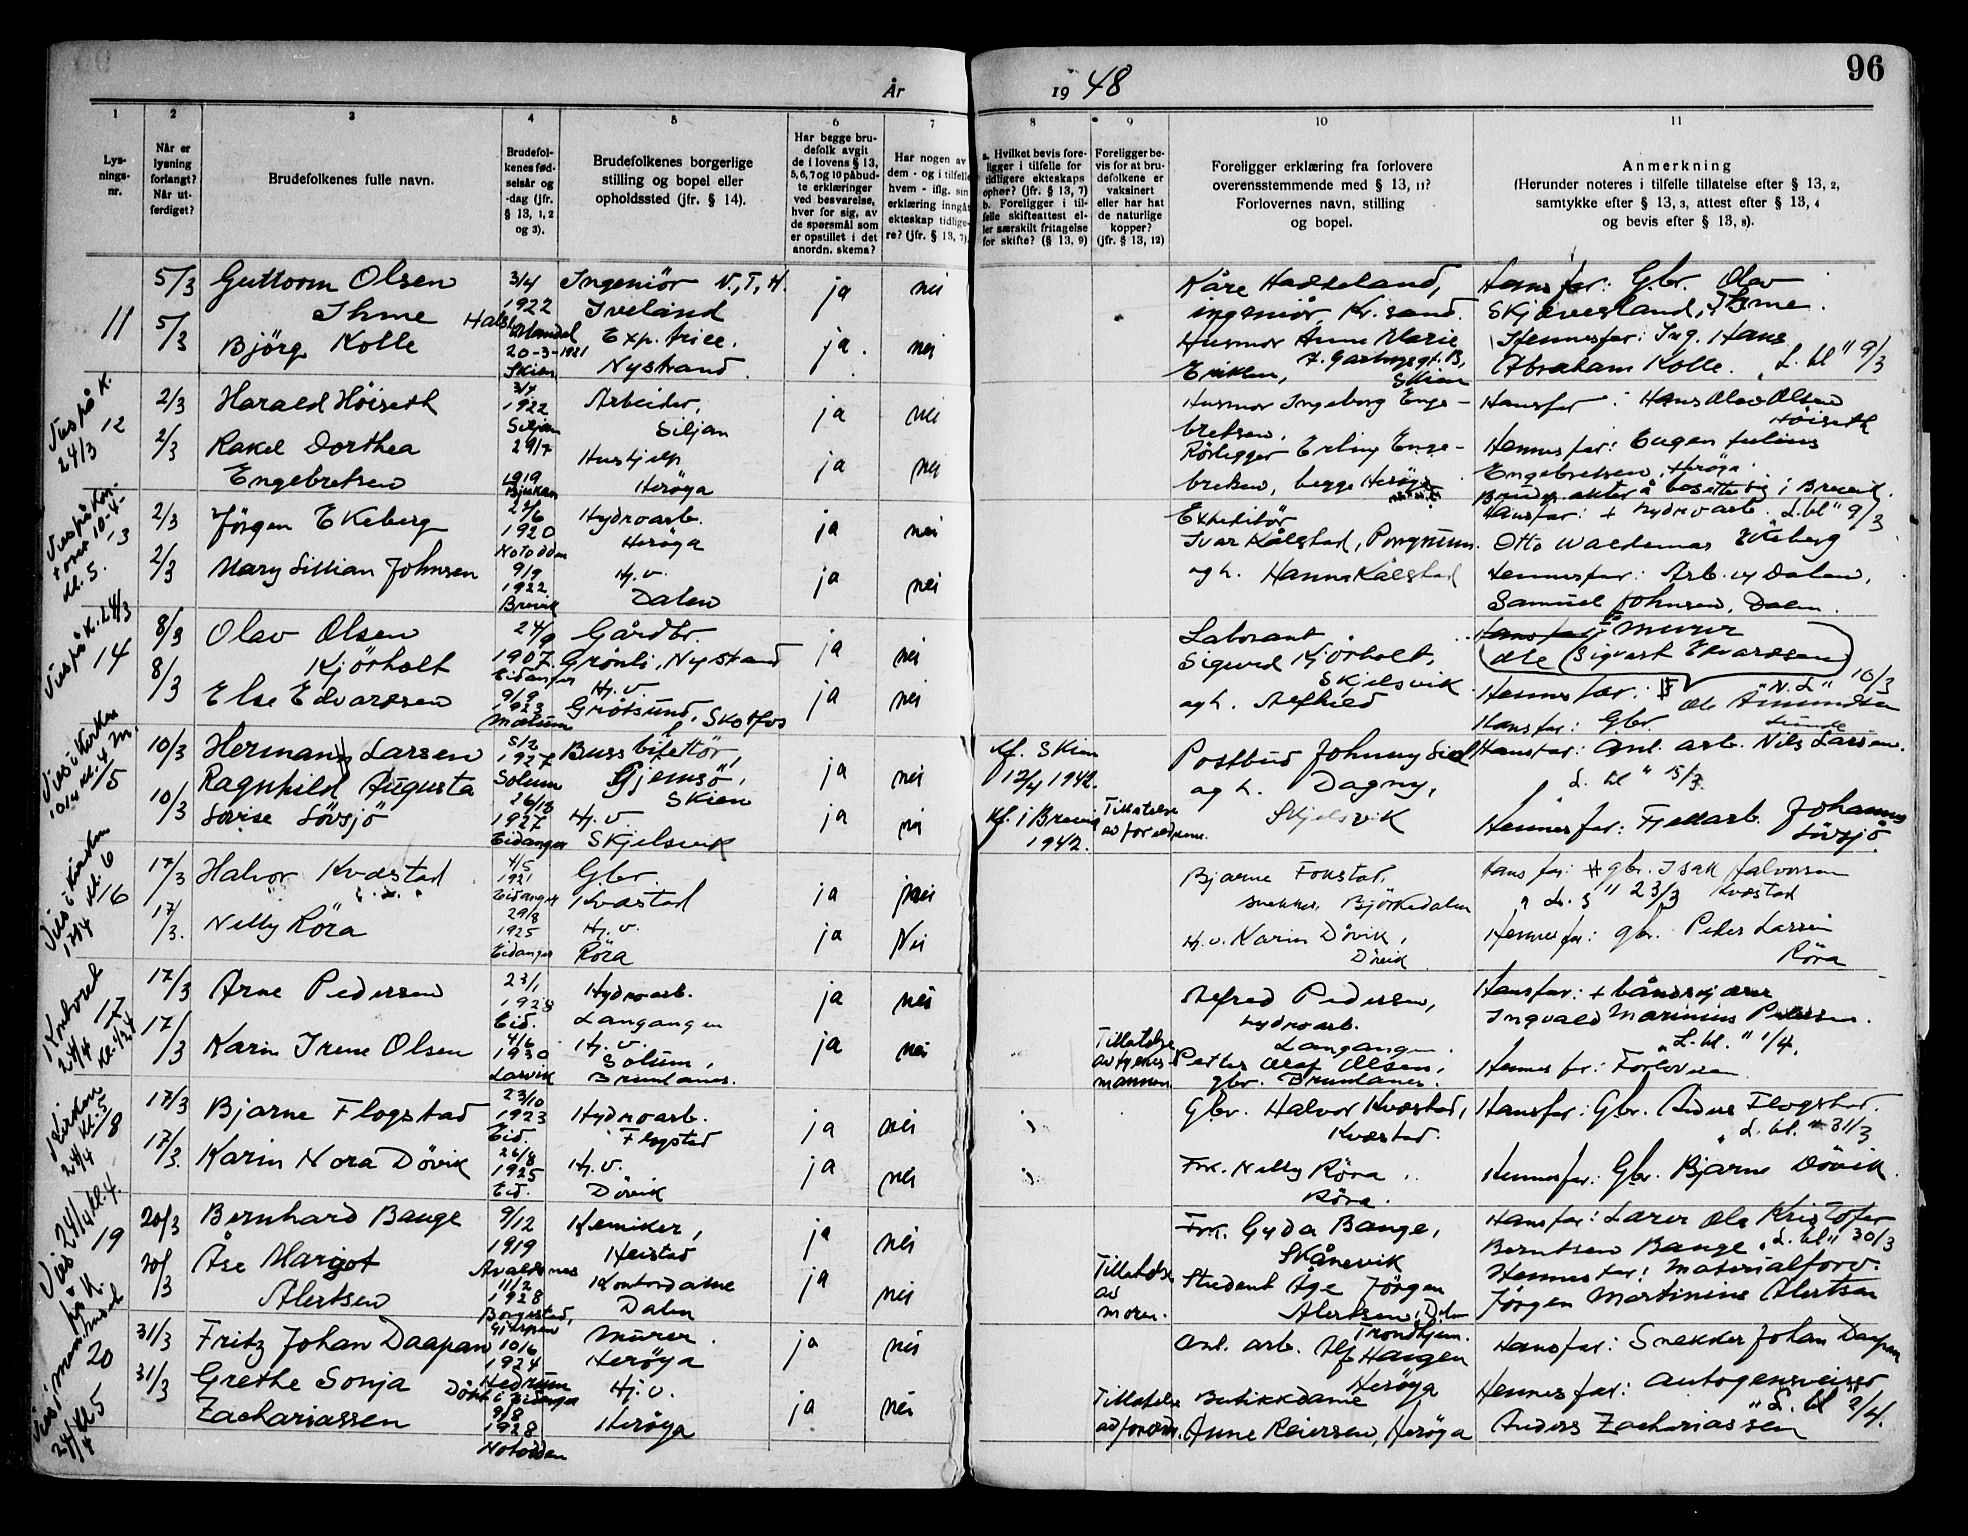 96
År
19 48
1
2
3
4
5
6
7
8
9
10
11
Lys-
nings-
nr.
Når er
lysning
forlangt?
Når ut-
ferdiget?
Brudefolkenes fulle navn.
Brudefol-
kenes fød-
selsår og
-dag (jfr.
§ 13, 1, 2
og 3).
Brudefolkenes borgerlige
stilling og bopel eller
opholdssted (jfr. § 14).
Har begge bru-
defolk avgit
de i lovens § 13,
5, 6, 7 og 10 påbud-
te erklæringer
ved besvarelse,
hver for sig, av
de spørsmål som
er opstillet i det
anordn. skema?
Har nogen av
dem - og i tilfelle
hvem - iflg. sin
erklæring inngåt
ekteskap tidlige-
re? (jfr. § 13, 7).
a. Hvilket bevis fore-
ligger i tilfelle for
tidligere ekteskaps
ophør? (jfr. § 13, 7)
b. Foreligger i til-
felle skifteattest el-
ler særskilt fritagelse
for skifte? (§ 13, 9)
Foreligger be-
vis for at bru-
defolkene er
vaksinert
eller har hat
de naturlige
kopper?
(jfr. § 13, 12)
Foreligger erklæring fra forlovere
overensstemmende med § 13, 11?
Forlovernes navn, stilling
og bopel.
Anmerkning
(Herunder noteres i tilfelle tillatelse efter § 13, 2,
samtykke efter § 13, 3, attest efter § 13, 4
og bevis efter § 13, 8).
11
5/3 Guttorm Olsen
Ihme
3/4
1922
Ingeniör N.T.H.
Iveland
ja nei
Kåre Hadseland,
ingeniör, Kr.sand.
Hans far: Gbr. Olav
Skjævesland, Ihme.
5/3 Björg Kolle
20-3-1921
Skien
Nystrand
ja. nei
Husmor Anne Marie
Skien
Hennes far: Ing. Hans
Abraham Kolle. "L. bl" 9/3
Vies på K.
24/3
12
2/3 Harald Höiseth
3/4
1922
Siljan
Arbeider,
Siljan
ja nei
Husmor Ingeborg Enge-
bretsen.
Hans far: Hans Olav Olsen
Höiseth
2/3 Rakel Dorthea
Engebretsen
29/7
1919
Hushjelp
Heröya
ja nei
Rörlegger Erling Enge-
bretsen, begge Heröya
Hennes far: Eugen Julius
Engebretsen, Heröya
13
2/3 Jörgen Ekeberg
1920
Notodden
Hydroarb.
Heröya
ja nei
Expeditör
Ivar Kålstad, Porsgrunn.
Hans far: + hydroarb. L. bl" 9/3
Otto Waldemar Ekeberg
2/3 Mary Lillian Johnsen
9/9
1922
Brevik
Hj. v.
Dalen
ja nei
og h. Hanna Kålstad
Hennes far: Arb. ved Dalen,
Samuel Johnsen, Dalen.
Vies på K. 24/3
14
8/3 Olav Olsen
Kjörholt
24/9
1907
Eidanger
Gårdbr.
Grönli, Nystrand
ja nei
Laborant
Sigurd Kjörholt,
Skjelsvik
Murer
Sigvart Edvardsen
8/3 Else Edvardsen
9/9
1923
Mælum
Hj. v.
Grötsund, Skotfos
ja nei
og h. Alfhild
Hennes far: "N.L" 10/3
Ole Amundsen
Hans far: Gbr.
Vies i Kirken
10/4 kl. 4 m.
15
10/3 Herman Larsen
5/2
1927
Solum
Bussbilettör,
Gjemsö,
Skien
ja nei
kf. Skien
12/4 1942.
Postbud Johnny
og h. Dagny,
Skjelsvik
Hans far: Anl. arb. Nils Larsen.
"L. bl" 15/3
10/3 Ragnhild Augusta
Lovise Lövsjö
26/12
1927
Eidanger
Hj. v.
Skjelsvik
ja nei
kf. i Brevik
1942.
Tillatelse
av foreldrene.
Hennes far: Fjellarb. Johannes
Lövsjö
Vies i Kirken
17/4 kl. 6
16
17/3 Halvor Kvæstad
4/5
1921
Eidanger
Gbr.
Kvæstad
ja nei
Bjarne Fonstad,
snekker, Björkedalen
Hans far: gbr. Isak Halvorsen
Kvæstad
"L. b" 23/3
17/3. Nelly Röra
29/8
1925
Eidanger
Hj. v.
Röra
ja Nei
Hj. v. Karin Dövik,
Dövik
Hennes far: gbr. Peder Larsen
Röra
Kontoret
24/4
17
17/3 Arne Pedersen
23/1
1928
Eid.
Hydroarb.
Langangen
ja nei
Alfred Pedersen,
hydroarb.
Langangen.
Hans far: +
Ingvald Marinius Pedersen.
"L. bl." 1/4.
17/3 Karin Irene Olsen
4/6
1930
Larvik
Hj. v.
Solum,
Brunlanes.
ja nei
Tillatelse
av fylkes-
mannen
Petter Olaf Olsen,
gbr. Brunlanes.
Hennes far: Forloveren
Kirken
24/4 kl. 5
18
17/3 Bjarne Flogstad
23/10
1923
Eid.
Hydroarb.
Flogstad
ja nei
Gbr. Halvor Kvæstad,
Kvæstad.
Hans far: Gbr. Anders Flogstad.
"L. bl." 31/3
17/3. Karin Nora Dövik
26/8
1925
Eid.
Hj. v.
Dövik
ja nei
Frk. Nelly Röra
Röra.
Hennes far: Gbr. Bjarne Dövik.
Vies 24/4 kl. 4.
på K.
19
20/3 Bernhard Bauge
9/12
1919
Avaldsnes
Kemiker,
Heistad
ja nei
Frk. Gyda Bauge,
Skånevik
Hans far: Lærer Ole Kristofer
Berntsen Bauge "L. bl" 30/3
20/3 Åse Margot
Alertsen
11/2
1928
Borgestad,
Gjerpen
Kontordame
Dalen
ja nei
Tillatelse
av
moren.
Student Åge Jörgen
Alertsen,
Trondhjem.
Hennes far: Materialforv.
Jörgen Martinius Alertsen
24/4 kl 5
20
31/3 Fritz Johan Daapan
10/6
1924
Hedrum
Döbt i Eidanger
Murer.
Heröya
ja nei
Anl. arb. Alf Haugen
Heröya
Hans far: Snekker Johan Daapan
31/3 Grethe Sonja
Zachariassen
9/8
1928
Notodden
Hj. v.
Heröya
ja nei
Tillatelse
av foreldr.
Butikkdame
Anne Reiersen, Heröya
Hennes far: Autogensveiser
Anders Zachariassen
"L. bl" 9/4.